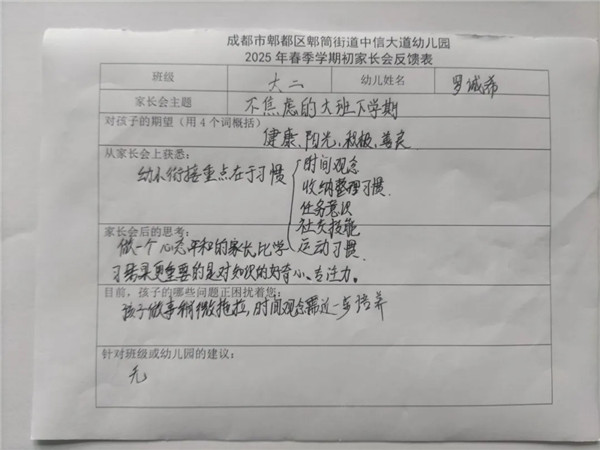 成都市郫都区郫筒街道中信大道幼儿园
2025年春季学期初家长会反馈表
班级 大二 幼儿姓名 罗诚希
家长会主题 不焦虑的大班下学期
对孩子的期望（用4个词概括）
健康、阳光、积极、善良
从家长会上获悉：
幼小衔接重点在于习惯
时间观念
收纳整理习惯
任务意识
社交技能
运动习惯
家长会后的思考：
做一个心态平和的家长比学
习结果更重要的是对知识的好奇心、专注力。
目前，孩子的哪些问题正困扰着您：
孩子做事稍微拖拉，时间观念需进一步培养
针对班级或幼儿园的建议：
无